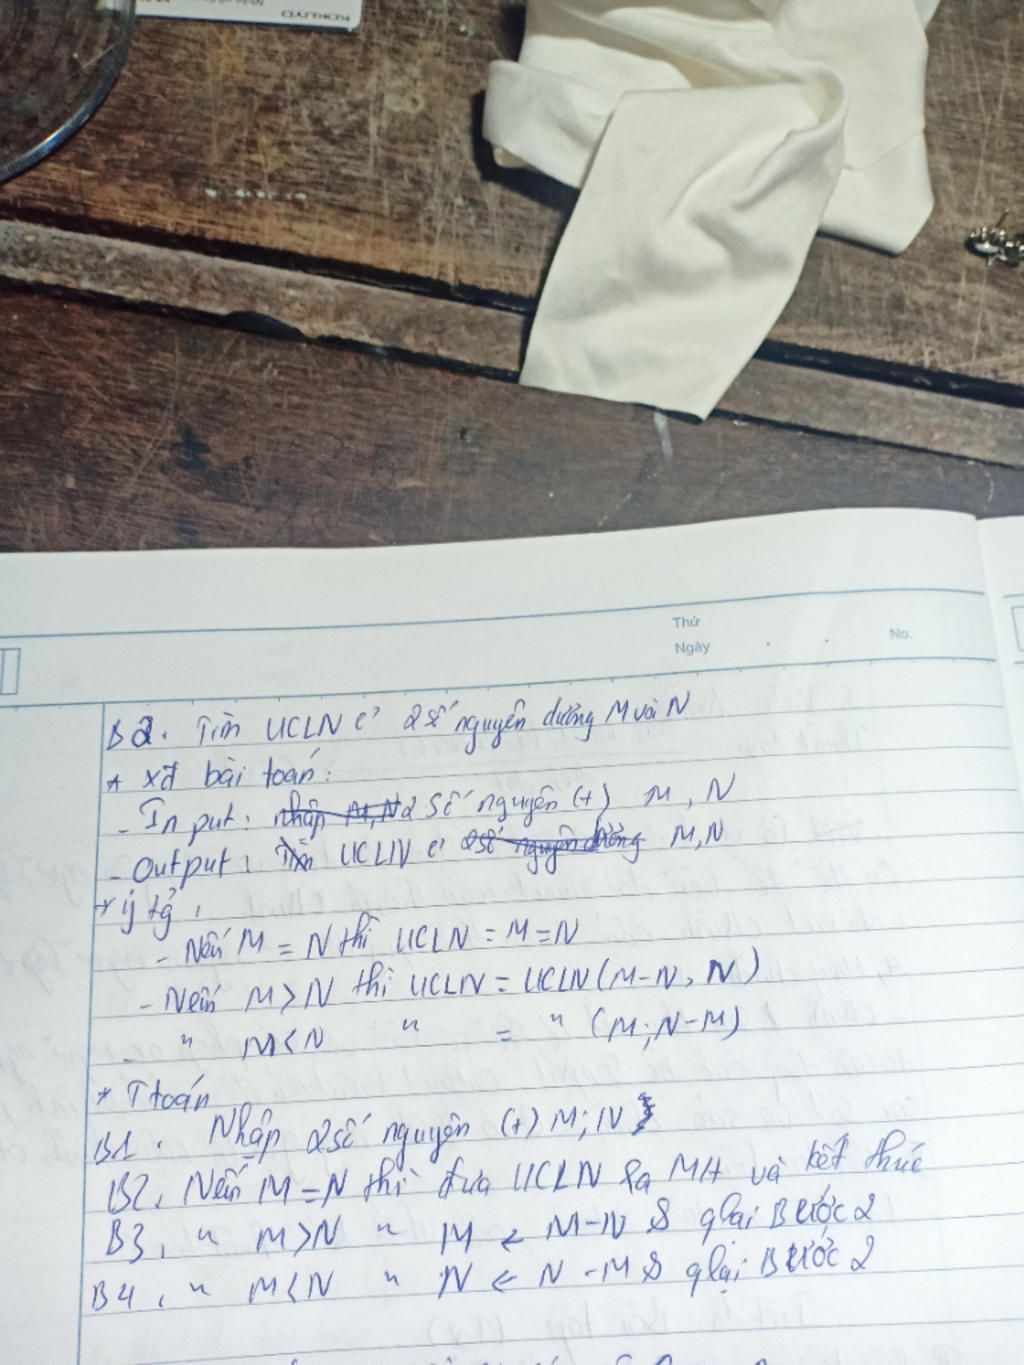 KOKUYO
Thứ
Ngày
No.
B2. Tìm UCLN c' 2 số nguyên dương M và N
* xđ bài toán:
- Input: nhập M, N 2 số nguyên (+) M, N
- Output: Tìm UCLN c' 2 số nguyên dương M, N
* ý tg:
- Nếu M = N thì UCLN = M = N
- Nếu M > N thì UCLN = UCLN (M-N, N)
- " M < N " = " (M; N-M)
* T toán
B1. Nhập 2 số nguyên (+) M; N
B2. Nếu M = N thì đưa UCLN ra MH và kết thúc
B3. " M > N " M ← M-N & qlại Bước 2
B4. " M < N " N ← N - M & qlại Bước 2